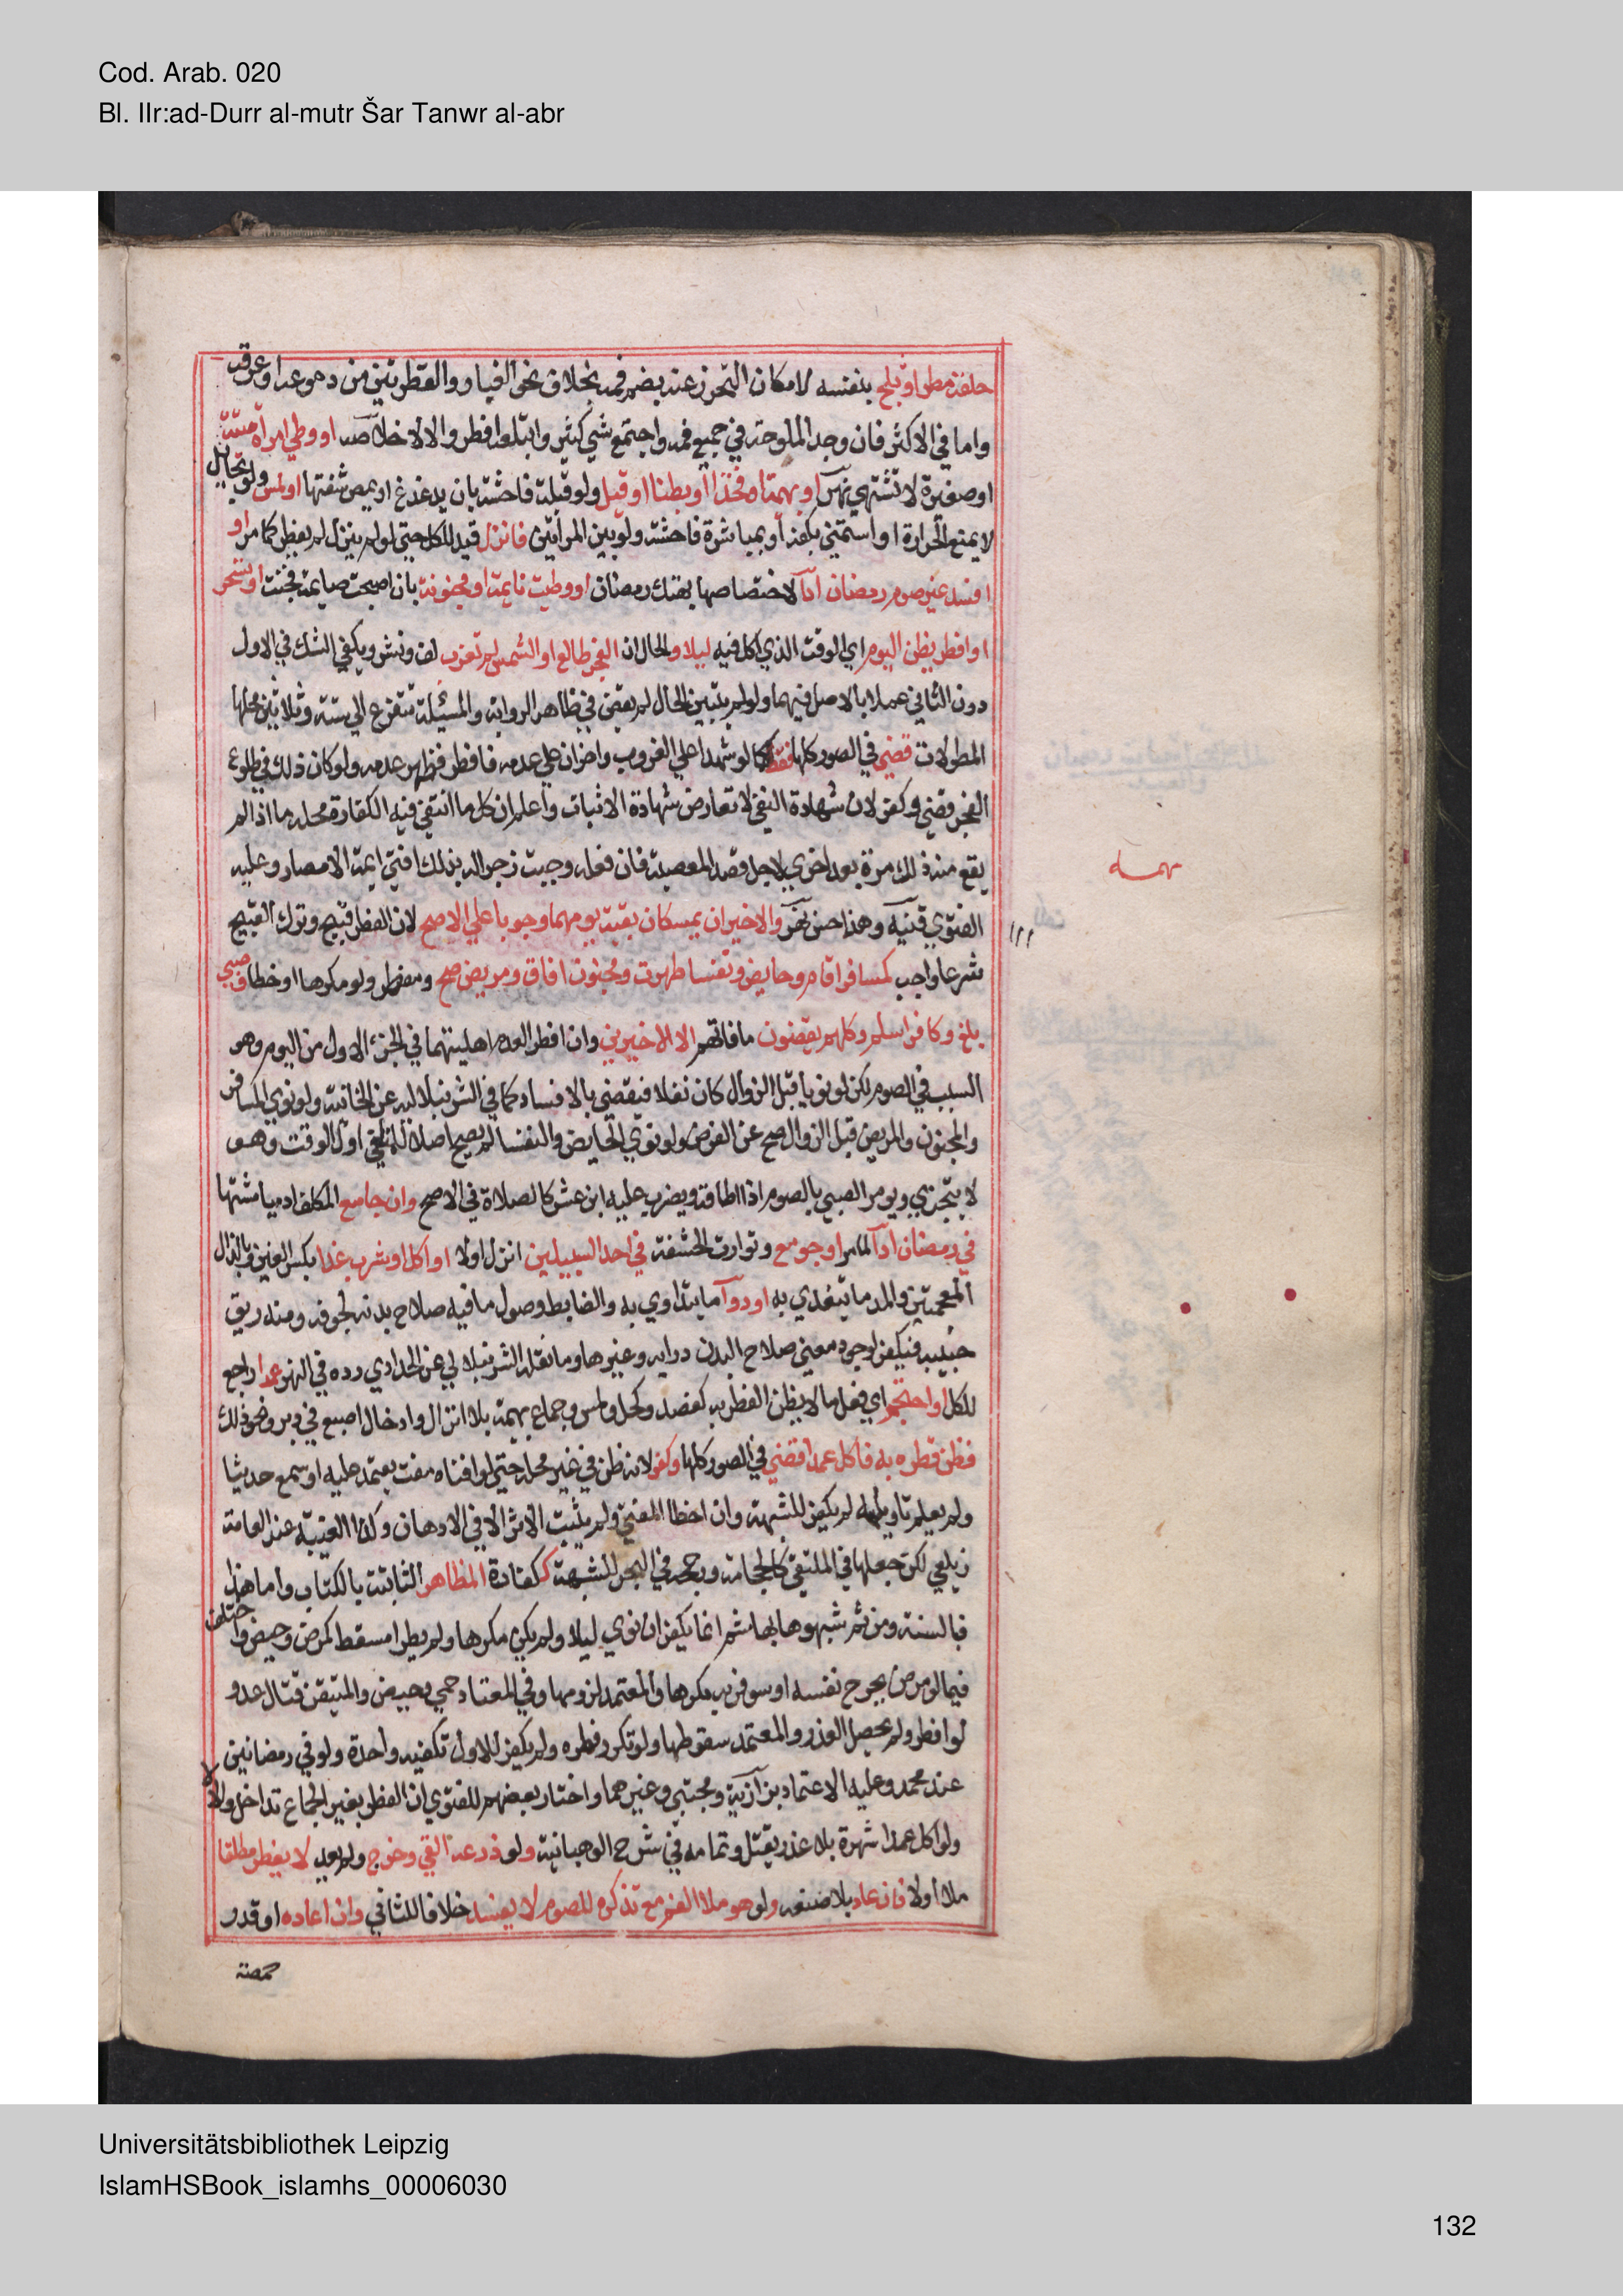 Cod. Arab. 020
Bl. IIr:ad-Durr al-mutr Šar Tanwr al-abr
حلقه مطر او ثلج بنفسه لامكان التحرز عنه بضم فمه بخلاف نحو الغبار والقطرتين من دموعه او عرقه
واما في الاكثر فان وجد الملوحة في جميع فمه واجتمع شي كثير وابتلعه افطر والا لا خلاصه او وطي امراة ميتة
او صغيرة لا تشتهي نهر او بهيمة او فخذا او بطنا او قبل ولو قبلة فاحشة بان يدغدغ او يمص شفتها او لمس ولو بحايل
لا يمنع الحرارة او استمني بكفه او بمباشرة فاحشة ولو بين المراتين فانزل قيد للكل حتي لو لم ينزل لم يفطر كما مر او
افسد غير صوم رمضان ادآ لاختصاصها بهتك رمضان او وطيت نايمة او مجنونة بان اصبحت صايمة فجنت او تسحر
او افطر يظن اليوم اي الوقت الذي اكل فيه ليلا والحال ان الفجر طالع او الشمس لم تغرب لف ونشر ويكفي الشك في الاول
دون الثاني عملا بالاصل فيهما ولو لم يتبين الحال لم يقض في ظاهر الرواية والمسئلة تتفرع الي ستة وثلاثين محلها
المطولات قضي في الصور كلها فقط كما لو شهدا علي الغروب واخران علي عدمه فافطر فظهر عدمه ولو كان ذلك في طلوع
الفجر قضي وكفر لان شهادة النفي لا تعارض شهادة الاثبات واعلم ان كل ما انتفي فيه الكفارة محله ما اذا لم
يقع منه ذلك مرة بعد اخري لاجل قصد المعصية فان فعله وجبت زجرا له بذلك افتي ايمة الامصار وعليه
الفتوي قنيه وهذا حسن نهر والاخيران يمسكان بقية يومهما وجوبا علي الاصح لان الفطر قبيح وترك القبيح
شرعا واجب كمسافر اقام وحايض ونفسا طهرت ومجنون افاق ومريض صح ومفطر ولو مكرها او خطا وصبي
بلغ وكافر اسلم وكلهم يقضون ما فاتهم الا الاخيرين وان افطرا لعدم اهليتهما في الجزء الاول من اليوم وهو
السبب في الصوم لكن لو نويا قبل الزوال كان نفلا فيقضي بالافساد كما في الشرنبلاليه عن الخانية ولو نوي المسافر
والمجنون والمريض قبل الزوال صح عن الفرض ولو نوي الحايض والنفسا لم يصح اصلا للمنافي اول الوقت وهو
لا يتجزي ويومر الصبي بالصوم اذا اطاقه ويضرب عليه ابن عشر كالصلاة في الاصح وان جامع المكلف ادميا مشتها
في رمضان ادآ لما مر او جومع وتوارت الحشفة في احد السبيلين انزل او لا او اكل او شرب غذا بكسر الغين وبالذال
المعجمتين والمد ما يتغذي به او دوآ ما يتداوي به والضابط وصول ما فيه صلاح بدنه لجوفه ومنه ريق
حبيبه فيكفر لوجود معني صلاح البدن درايه وغيرها وما نقله الشرنبلالي عن الحدادي رده في النهر عمدا راجع
للكل او احتجم اي فعل ما لا يظن الفطر به كفصد وكحل ولمس وجماع بهيمة بلا انزال وادخال اصبع في دبر ونحو ذلك
فظن فطره به فاكل عمدا قضي في الصور كلها وكفر لانه ظن في غير محله حتي لو افتاه مفت يعتمد عليه او سمع حديثا
ولم يعلم تاويله لم يكفر للشبهة وان اخطا المفتي ولم يثبت الاثر الا في الادهان وكذا الغيبة عند العامة
زيلعي لكن جعلها في الملتقي كالحجامة ورجحه في البحر للشبهة ككفارة المظاهر الثابتة بالكتاب واما هذه
فبالسنة ومن ثم شبهوها بها ثم انما يكفر ان نوي ليلا ولم يكن مكرها ولم يطرا مسقط كمرض وحيض واختلف
فيما لو مرض بجرح نفسه او سوفر به مكرها والمعتمد لزومها وفي المعتاد حمي وحيض والمتيقن قتال عدو
لو افطر ولم يحصل العذر والمعتمد سقوطها ولو تكرر فطره ولم يكفر للاول تكفيه واحدة ولو في رمضانين
عند محمد وعليه الاعتماد بزازية ومجتبي وغيرهما واختار بعضهم للفتوي ان الفطر بغير الجماع تداخل والا لا
ولو اكل عمدا شهرة بلا عذر يقتل وتمامه في شرح الوهبانية ولو ذرعه القي وخرج ولم يعد لا يفطر مطلقا
ملا او لا فان عاد بلا صنعه ولو هو ملا الفم مع تذكره للصوم لا يفسد خلافا للثاني وان اعاده او قدر
حمصة
مهمه
Universitätsbibliothek Leipzig
IslamHSBook_islamhs_00006030
132